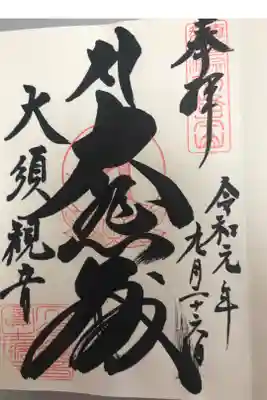 奉拝
令和元年九月二十六日
大悲殿
大須観音